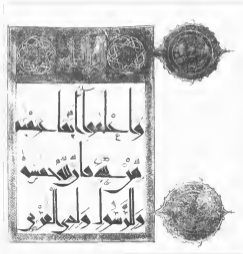 واعلموا أنما غنمتم
من شيء فأن لله خمسه
وللرسول ولذي القربى